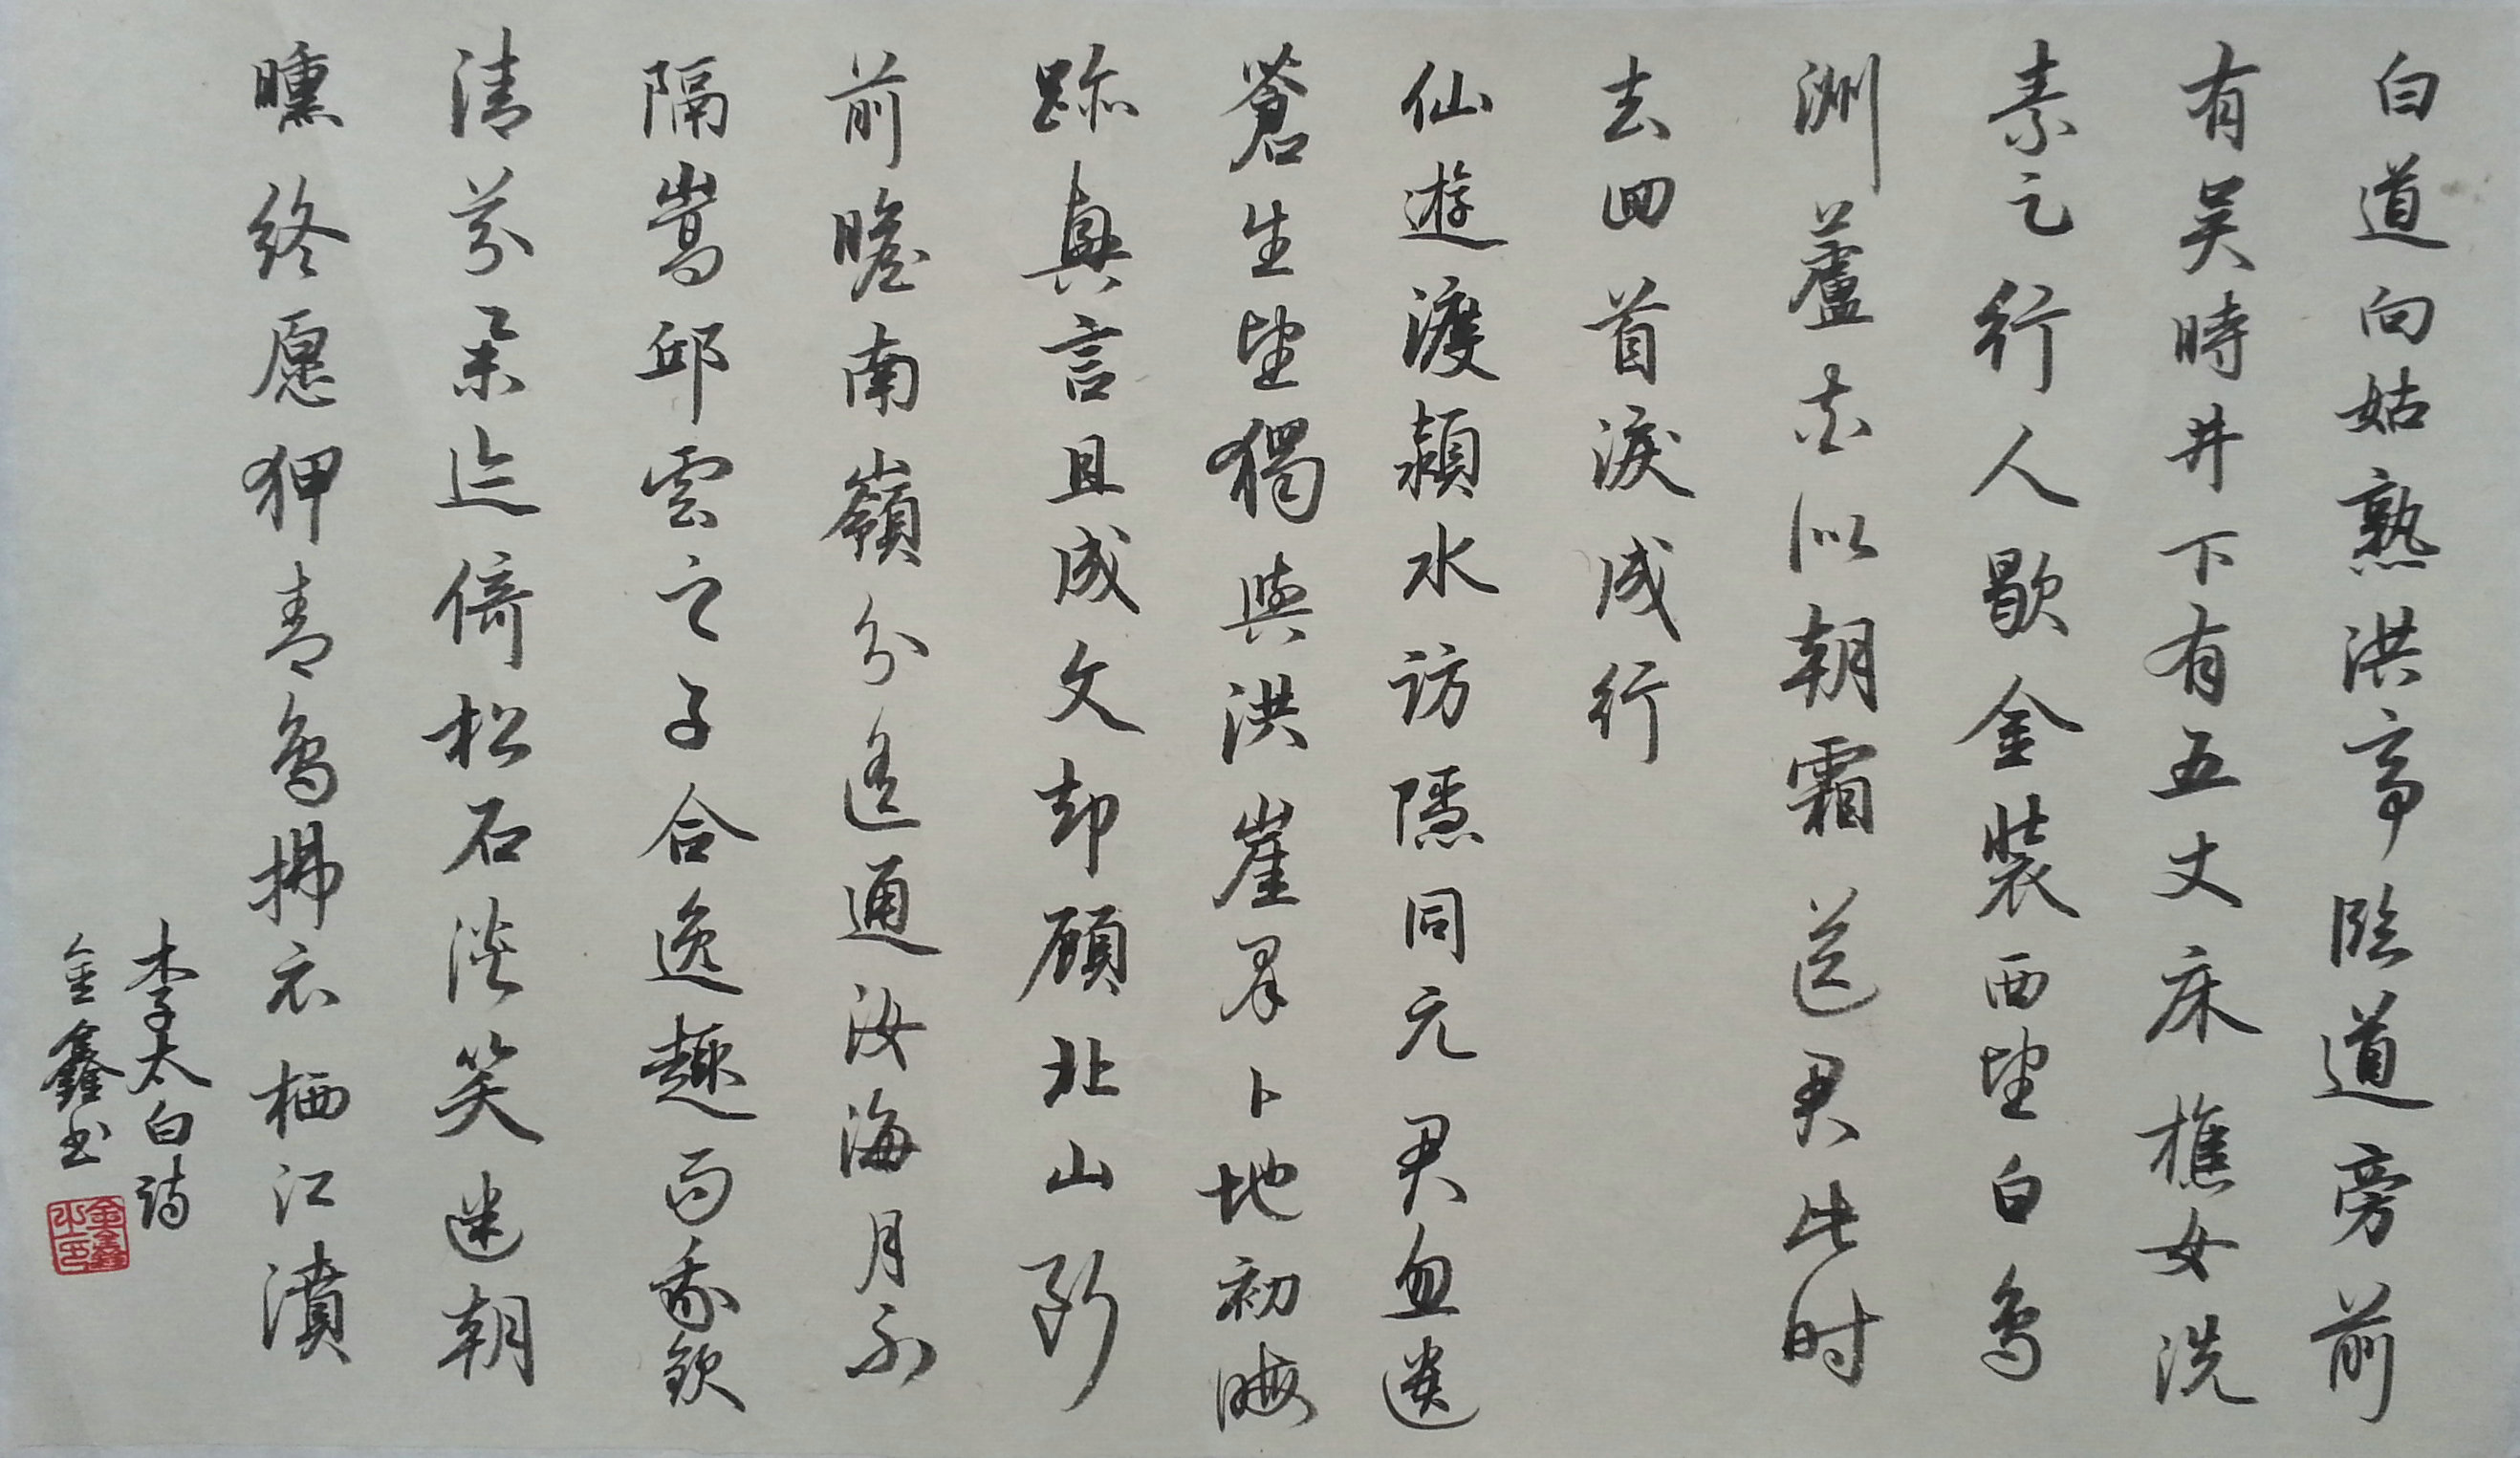 白道向姑熟洪亭臨道旁前
有吴時井下有五丈床樵女洗
素足行人歇金裝西望白鳥
洲蘆花似朝霜送君此时
去回首淚成行
仙遊渡潁水访隱同元君忽遗
蒼生望獨與洪崖羣卜地初晦
跡興言且成文却顧北山斷
前瞻南嶺分遥通汝海月不
隔嵩邱雲之子合逸趣而我欽
清芬舉迹倚松石淡笑迷朝
曛终愿狎青鳥拂衣栖江濆
李太白诗
金鑫书
金鑫之印